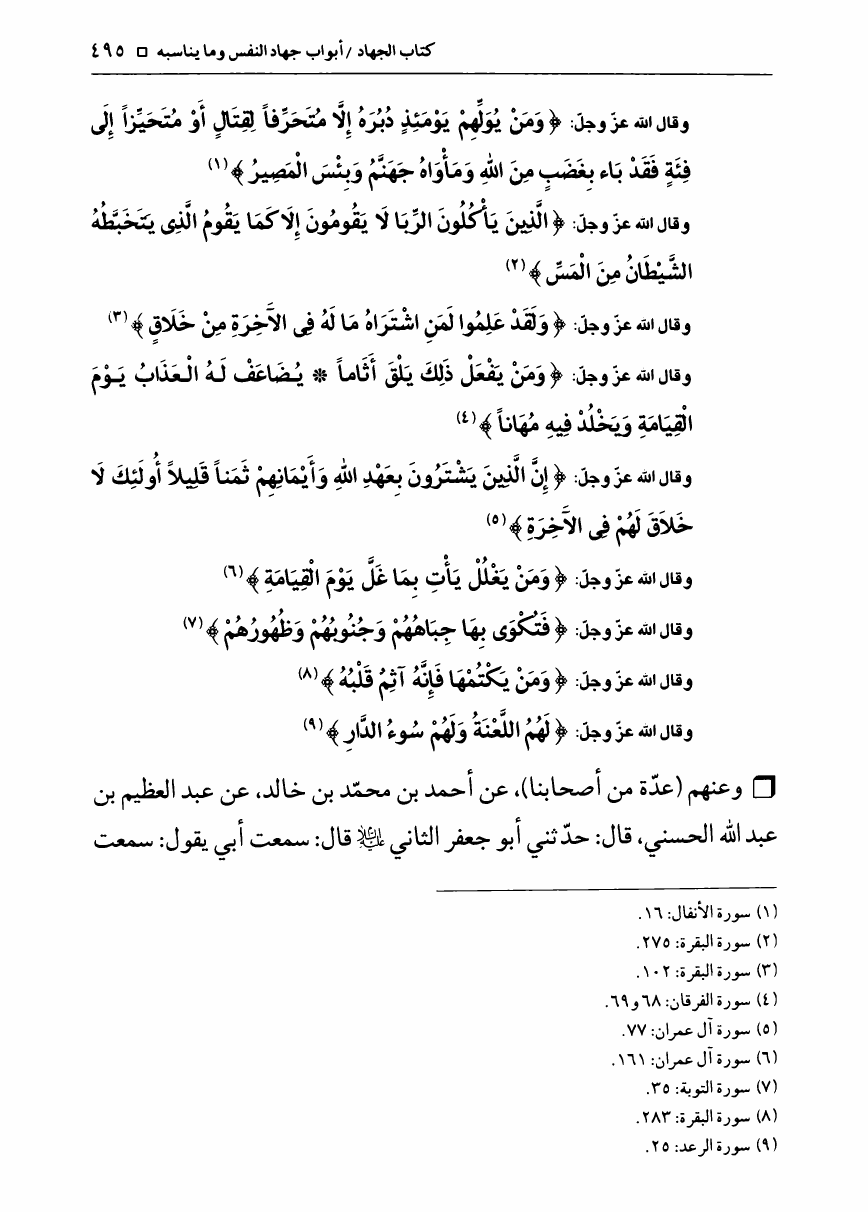 كتاب الجهاد / أبواب جهاد النفس وما يناسبه □ ٤٩٥
وقال الله عزّ وجلّ: ﴿ وَمَنْ يُوَلِّهِمْ يَوْمَئِذٍ دُبُرَهُ إِلَّا مُتَحَرِّفاً لِقِتَالٍ أَوْ مُتَحَيِّزاً إِلَى
فِئَةٍ فَقَدْ بَاء بِغَضَبٍ مِنَ اللهِ وَمَأْوَاهُ جَهَنَّمُ وَبِئْسَ الْمَصِيرُ ﴾(١)
وقال الله عزّ وجلّ: ﴿ الَّذِينَ يَأْكُلُونَ الرِّبَا لَا يَقُومُونَ إِلَا كَمَا يَقُومُ الَّذِى يَتَخَبَّطُهُ
الشَّيْطَانُ مِنَ الْمَسِّ ﴾(٢)
وقال الله عزّ وجلّ: ﴿ وَلَقَدْ عَلِمُوا لَمَنِ اشْتَرَاهُ مَا لَهُ فِى الآخِرَةِ مِنْ خَلَاقٍ ﴾(٣)
وقال الله عزّ وجلّ: ﴿ وَمَنْ يَفْعَلْ ذَلِكَ يَلْقَ أَثَاماً * يُـضَاعَفْ لَـهُ الْـعَذَابُ يَـوْمَ
الْقِيَامَةِ وَيَخْلُدْ فِيهِ مُهَاناً ﴾(٤)
وقال الله عزّ وجلّ: ﴿ إِنَّ الَّذِينَ يَشْتَرُونَ بِعَهْدِ اللهِ وَأَيْمَانِهِمْ ثَمَناً قَلِيلاً أُولَئِكَ لَا
خَلَاقَ لَهُمْ فِى الآخِرَةِ ﴾(٥)
وقال الله عزّ وجلّ: ﴿ وَمَنْ يَغْلُلْ يَأْتِ بِمَا غَلَّ يَوْمَ الْقِيَامَةِ ﴾(٦)
وقال الله عزّ وجلّ: ﴿ فَتُكْوَى بِهَا جِبَاهُهُمْ وَجُنُوبُهُمْ وَظُهُورُهُمْ ﴾(٧)
وقال الله عزّ وجلّ: ﴿ وَمَنْ يَكْتُمْهَا فَإِنَّهُ آثِمٌ قَلْبُهُ ﴾(٨)
وقال الله عزّ وجلّ: ﴿ لَهُمُ اللَّعْنَةُ وَلَهُمْ سُوءُ الدَّارِ ﴾(٩)
❒ وعنهم (عدّة من أصحابنا)، عن أحمد بن محمّد بن خالد، عن عبد العظيم بن
عبد الله الحسني، قال: حدّثني أبو جعفر الثاني عليه السلام قال: سمعت أبي يقول: سمعت
(١) سورة الأنفال: ١٦.
(٢) سورة البقرة: ٢٧٥.
(٣) سورة البقرة: ١٠٢.
(٤) سورة الفرقان: ٦٨ و٦٩.
(٥) سورة آل عمران: ٧٧.
(٦) سورة آل عمران: ١٦١.
(٧) سورة التوبة: ٣٥.
(٨) سورة البقرة: ٢٨٣.
(٩) سورة الرعد: ٢٥.